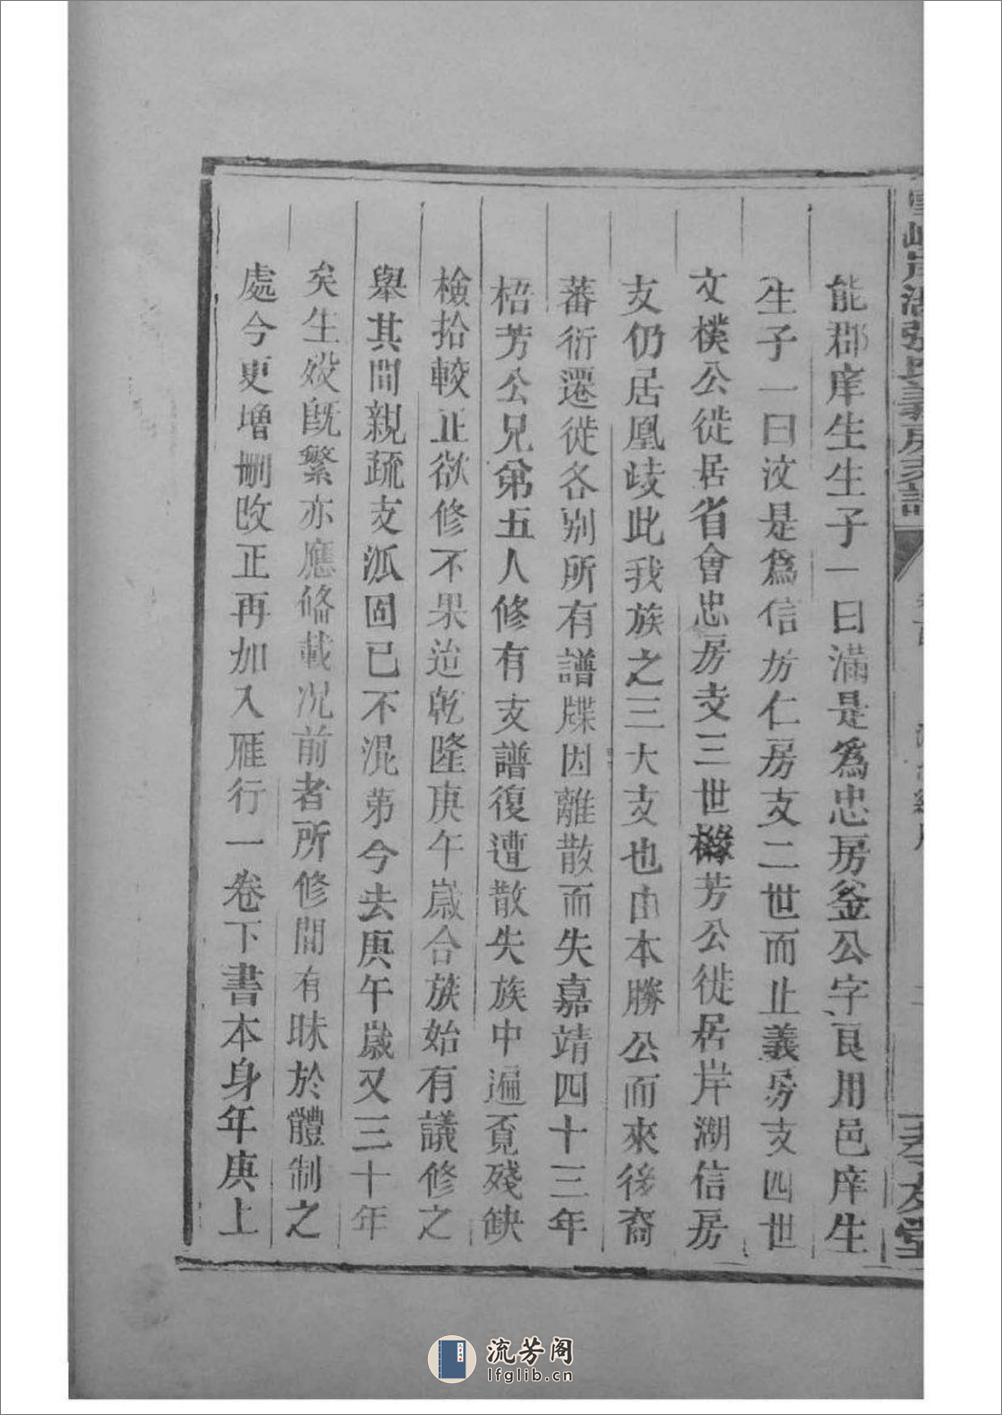 岸湖張氏義房支譜
孝友堂
能郡庠生生子一曰滿是為忠房釜公字艮用邑庠生
生子一曰汶是為信坊仁房支二世而止義房支四世
文樸公徙居省會忠房支三世檖芳公徙居岸湖信房
支仍居凰歧此我族之三大支也由本勝公而來後裔
蕃衍遷徙各别所有譜牒因離散而失嘉靖四十三年
梧芳公兄弟五人修有支譜復遭散失族中遍覓殘缺
檢拾較正欲修不果迨乾隆庚午歲合族始有議修之
舉其間親疏支派固已不混第今去庚午歲又三十年
矣生歿旣繁亦應俻載况前者所修間有昧於體制之
處今更增刪改正再加入雁行一卷下書本身年庚上
流芳阁
lfglib.cn